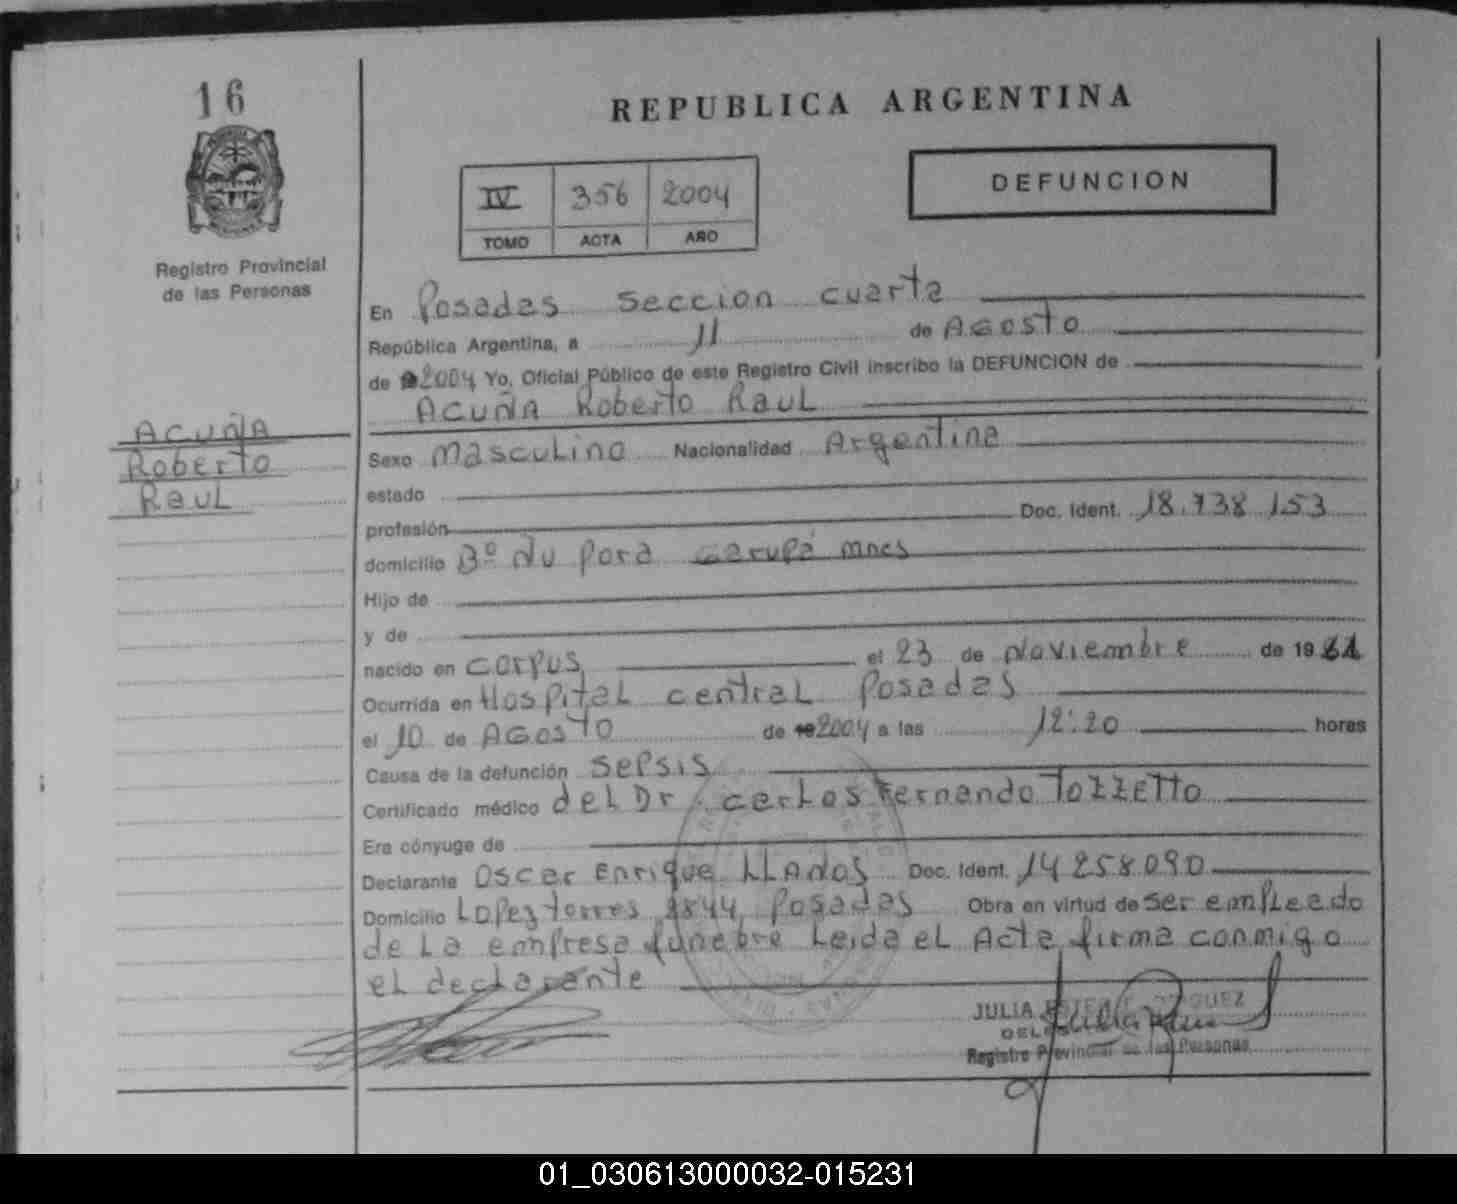 16
REPUBLICA ARGENTINA
IV 356 2004
TOMO ACTA AÑO
DEFUNCION
Registro Provincial
de las Personas
En Posadas seccion cuarta
República Argentina, a 11 de Agosto
de 2004 Yo, Oficial Público de este Registro Civil inscribo la DEFUNCION de
ACUÑA Roberto Raul
ACUÑA
Roberto
Raul
Sexo masculino Nacionalidad Argentina
estado
profesión Doc. Ident. 18.738.153
domicilio Bº Ñu Pora Garupá mnes
Hijo de
y de
nacido en corpus el 23 de Noviembre de 19
Ocurrida en Hospital central Posadas
el 10 de Agosto de 2004 a las 12:20 horas
Causa de la defunción sepsis
Certificado médico del Dr. Carlos Fernando TOZZETTO
Era cónyuge de
Declarante Oscar Enrique LLANOS Doc. Ident. 14.258.090
Domicilio Lopez torres Posadas Obra en virtud de ser empleado
de la empresa funebre Leida el Acta firma conmigo
el declarante
JULIA
Registro Provincial de las Personas
01_030613000032-015231